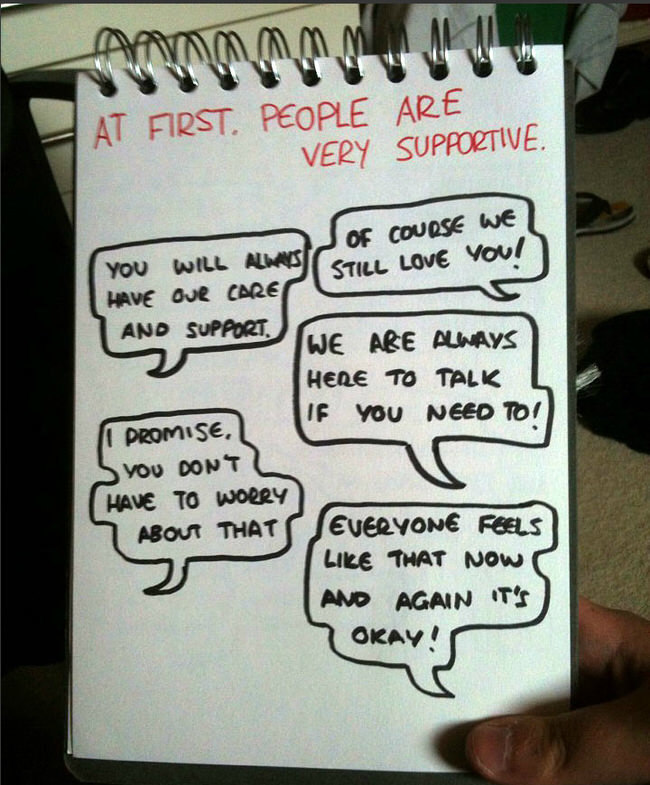 AT FIRST. PEOPLE ARE
VERY SUPPORTIVE.
YOU WILL ALWAYS
HAVE OUR CARE
AND SUPPORT.
OF COURSE WE
STILL LOVE YOU!
WE ARE ALWAYS
HERE TO TALK
IF YOU NEED TO!
I PROMISE.
YOU DON'T
HAVE TO WORRY
ABOUT THAT
EVERYONE FEELS
LIKE THAT NOW
AND AGAIN IT'S
OKAY!